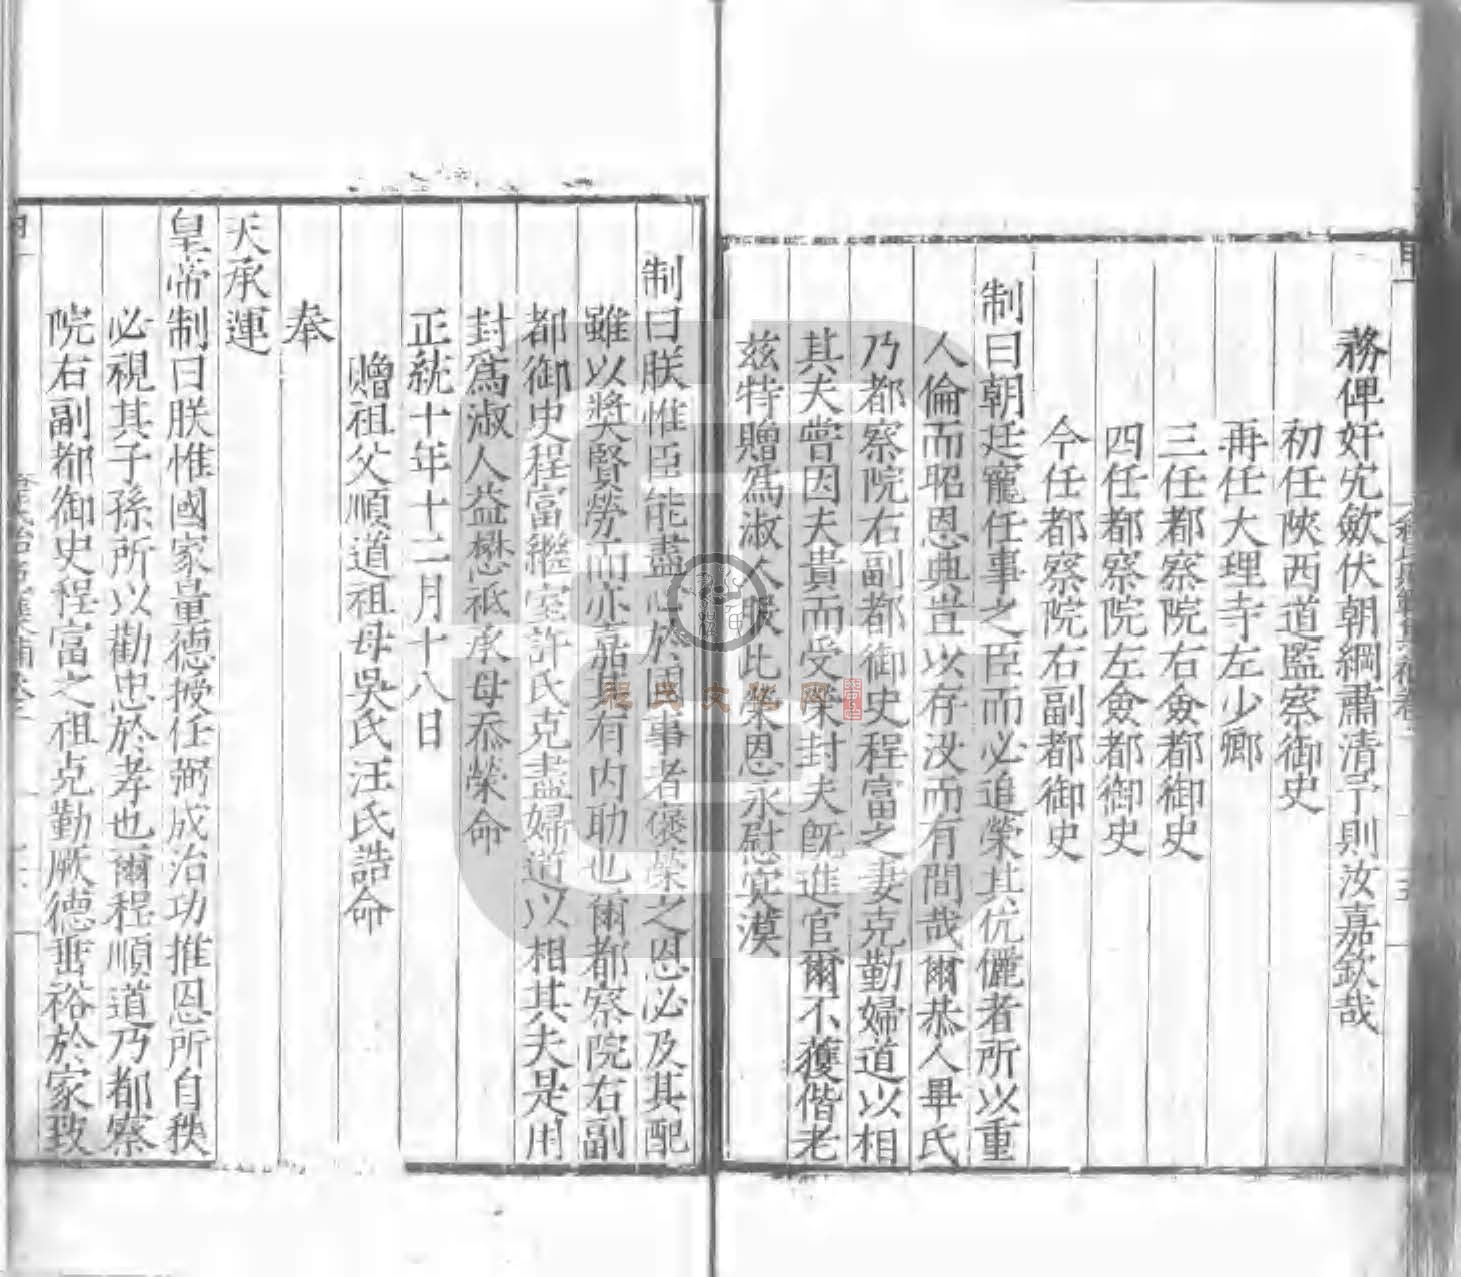 務俾奸宄歛伏朝綱肅清予則汝嘉欽哉
初任陝西道監察御史
再任大理寺左少卿
三任都察院右僉都御史
四任都察院左僉都御史
今任都察院右副都御史
制曰朝廷寵任事之臣而必追榮其伉儷者所以重
人倫而昭恩典豈以存没而有間哉爾恭人畢氏
乃都察院右副都御史程富之妻克勤婦道以相
其夫嘗因夫貴而受榮封夫既進官爾不獲偕老
兹特贈爲淑人服此榮恩永慰冥漠
制曰朕惟臣能盡 於 事者褒榮之恩必及其配
雖以奬賢勞而亦嘉其有内助也爾都察院右副
都御史程富繼室許氏克盡婦道以相其夫是用
封爲淑人益懋祗承毋忝榮命
正統十年十二月十八日
贈祖父順道祖母吳氏汪氏誥命
奉
天承運
皇帝制曰朕惟國家量德授任弼成治功推恩所自秩
必視其子孫所以勸忠於孝也爾程順道乃都察
院右副都御史程富之祖克勤厥德垂裕於家致
程氏文化网